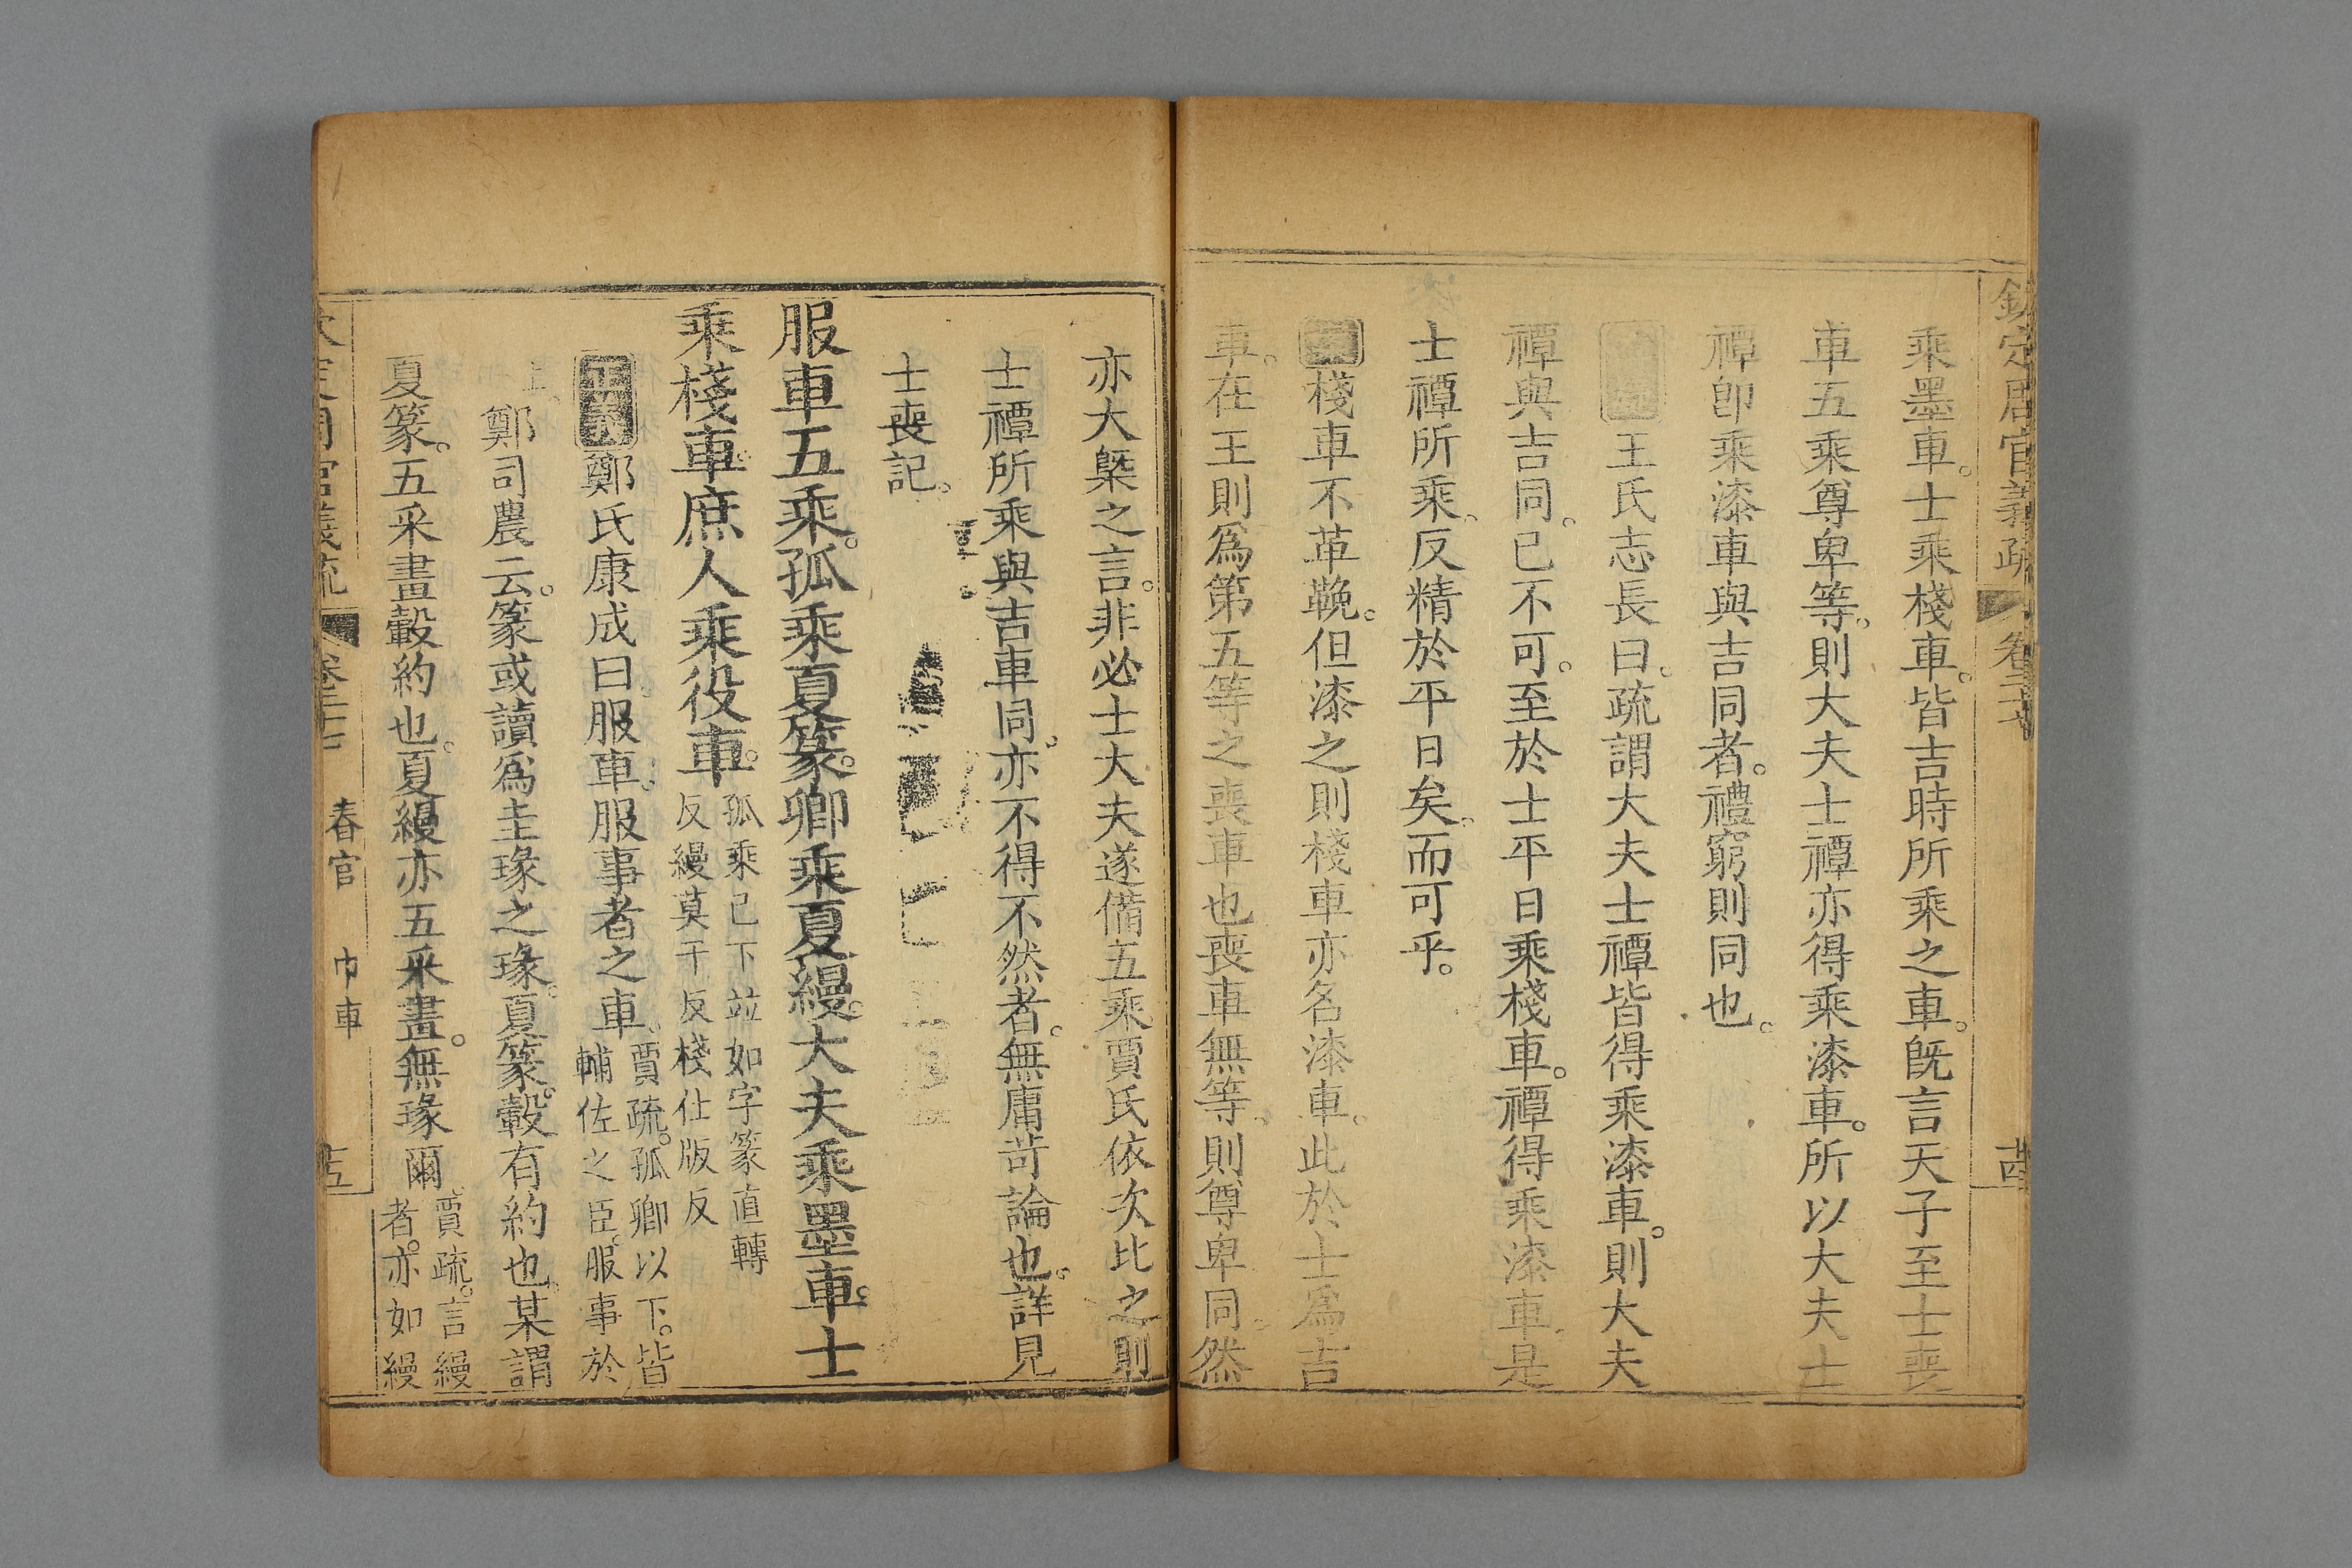 欽定周官義疏 卷二十六
乘墨車。士乘棧車。皆吉時所乘之車。旣言天子至士喪
車五乘尊卑等。則大夫士禫亦得乘漆車。所以大夫士
禫卽乘漆車與吉同者。禮窮則同也。
王氏志長曰。疏謂大夫士禫皆得乘漆車。則大夫
禫與吉同。已不可。至於士平日乘棧車。禫得乘漆車。是
士禫所乘。反精於平日矣。而可乎。
棧車不革鞔。但漆之則棧車亦名漆車。此於士爲吉
車。在王則爲第五等之喪車也喪車無等。則尊卑同。然
亦大槩之言。非必士大夫遂備五乘。賈氏依次比之則
士禫所乘與吉車同。亦不得不然者。無庸苛論也。詳見
士喪記。
服車五乘。孤乘夏篆。卿乘夏縵。大夫乘墨車。士
乘棧車。庶人乘役車。孤乘已下並如字篆直轉
反縵莫干反棧仕版反
正義鄭氏康成曰。服車。服事者之車。賈疏。孤卿以下。皆
輔佐之臣。服事於
上。鄭司農云。篆或讀爲圭瑑之瑑。夏篆。轂有約也。某謂
夏篆。五采畫轂約也。夏縵亦五采畫。無瑑爾。賈疏。言縵
者。亦如縵
春官 巾車